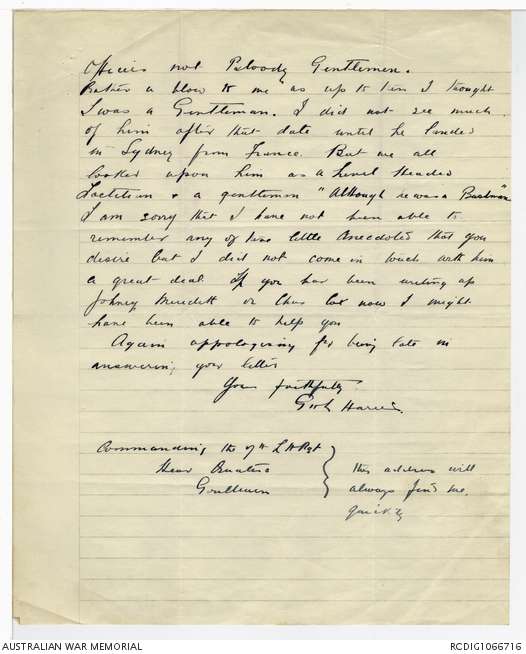 Officers not Bloody Gentlemen.
Rather a blow to me as up to then I thought
I was a Gentleman. I did not see much
of him after that date until he landed
in Sydney from France. But we all
looked upon him as a Level Headed
Tactition & a gentleman "Although he was a Bushman"
I am sorry that I have not been able to
remember any of those little Anecdotes that you
desire but I did not come in touch with him
a great deal. If you had been writing up
Johney Meredith or Chas Cox now I might
have been able to help you
Again appologising for being late in
answering your letter
Your faithfully
Harris
Commanding the 7th L H Rgt
Head Quarters
Goulburn
this address will
always find me.
quickly
AUSTRALIAN WAR MEMORIAL
RCDIG1066716